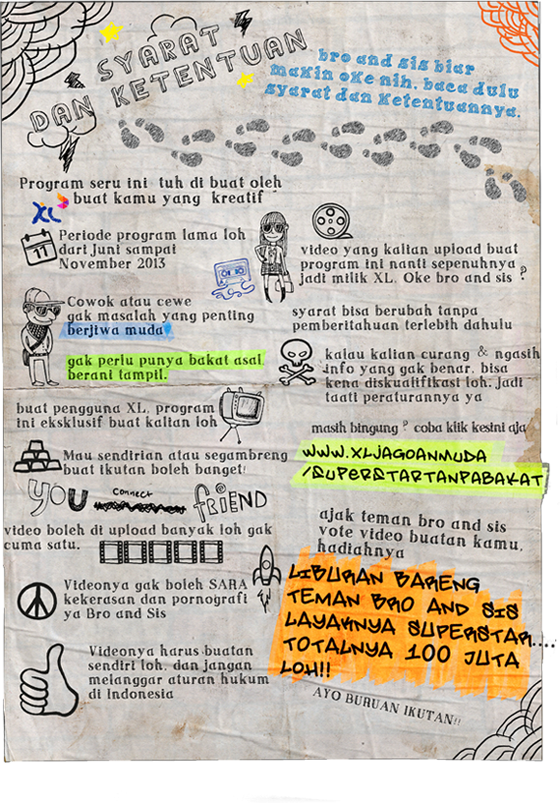 SYARAT
DAN KETENTUAN
bro and sis biar
makin oke nih, baca dulu
syarat dan ketentuannya.
Program seru ini tuh di buat oleh
XL buat kamu yang kreatif
11
Periode program lama loh
dari Juni sampai
November 2013
Cowok atau cewe
gak masalah yang penting
berjiwa muda
gak perlu punya bakat asal
berani tampil.
buat pengguna XL, program
ini eksklusif buat kalian loh
Mau sendirian atau segambreng
buat ikutan boleh banget!
YOU connect friEND
video boleh di upload banyak loh gak
cuma satu.
Videonya gak boleh SARA
kekerasan dan pornografi
ya Bro and Sis
Videonya harus buatan
sendiri loh, dan jangan
melanggar aturan hukum
di Indonesia
video yang kalian upload buat
program ini nanti sepenuhnya
jadi milik XL. Oke bro and sis ?
syarat bisa berubah tanpa
pemberitahuan terlebih dahulu
kalau kalian curang & ngasih
info yang gak benar, bisa
kena diskualifikasi loh, jadi
taati peraturannya ya
masih bingung ? coba klik kesini aja
WWW.XLJAGOANMUDA
/SUPERSTARTANPABAKAT
ajak teman bro and sis
vote video buatan kamu,
hadiahnya
LIBURAN BARENG
TEMAN BRO AND SIS
LAYAKNYA SUPERSTAR....
TOTALNYA 100 JUTA
LOH!!
AYO BURUAN IKUTAN!!